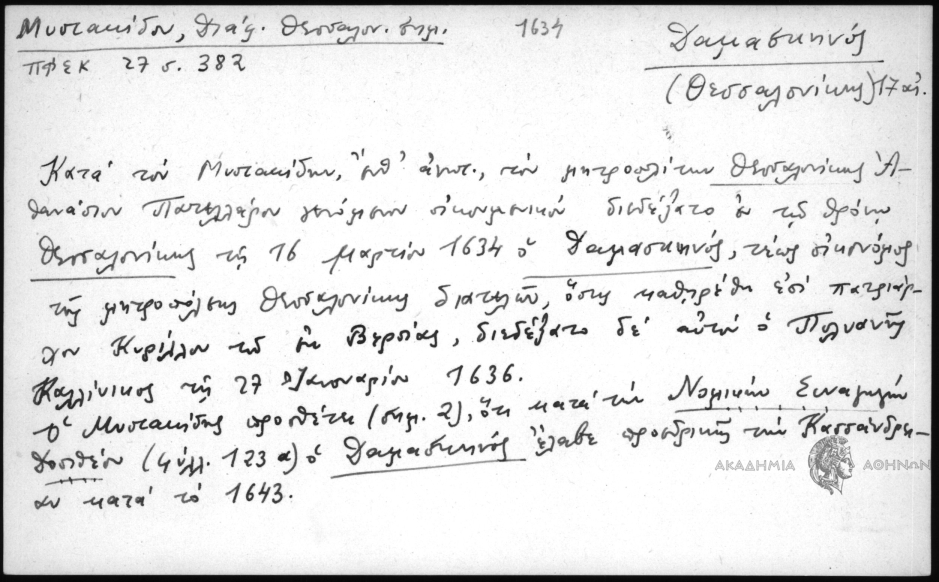 Μυστακίδου, Διάφ. Θεσσαλον. σημ. 1634
ΠΦΣΚ 27 σ. 382
Δαμασκηνός
(Θεσσαλονίκης) 17 αἰ.
Κατά τόν Μυστακίδην, ἔνθ' ἀνωτ., τόν μητροπολίτην Θεσσαλονίκης Ἀ-
θανάσιον Πατελλάρον γενόμενον οἰκουμενικόν διεδέξατο ἐν τῷ θρόνῳ
Θεσσαλονίκης τῇ 16 Μαρτίου 1634 ὁ Δαμασκηνός, τέως οἰκονόμος
τῆς μητροπόλεως Θεσσαλονίκης διατελῶν, ὅστις καθῃρέθη ἐπί πατριάρ-
χου Κυρίλλου τοῦ ἐκ Βερροίας, διεδέξατο δέ αὐτόν ὁ Πολυανῆς
Καλλίνικος τῇ 27 Ἰανουαρίου 1636.
Ὁ Μυστακίδης προσθέτει (σημ. 2), ὅτι κατά τήν Νομικήν Συναγωγήν
Δοσιθέου (φύλλ. 123 α) ὁ Δαμασκηνός ἔλαβε προεδρικῶς τήν Κασσάνδρει-
αν κατά τό 1643.
ΑΚΑΔΗΜΙΑ ΑΘΗΝΩΝ